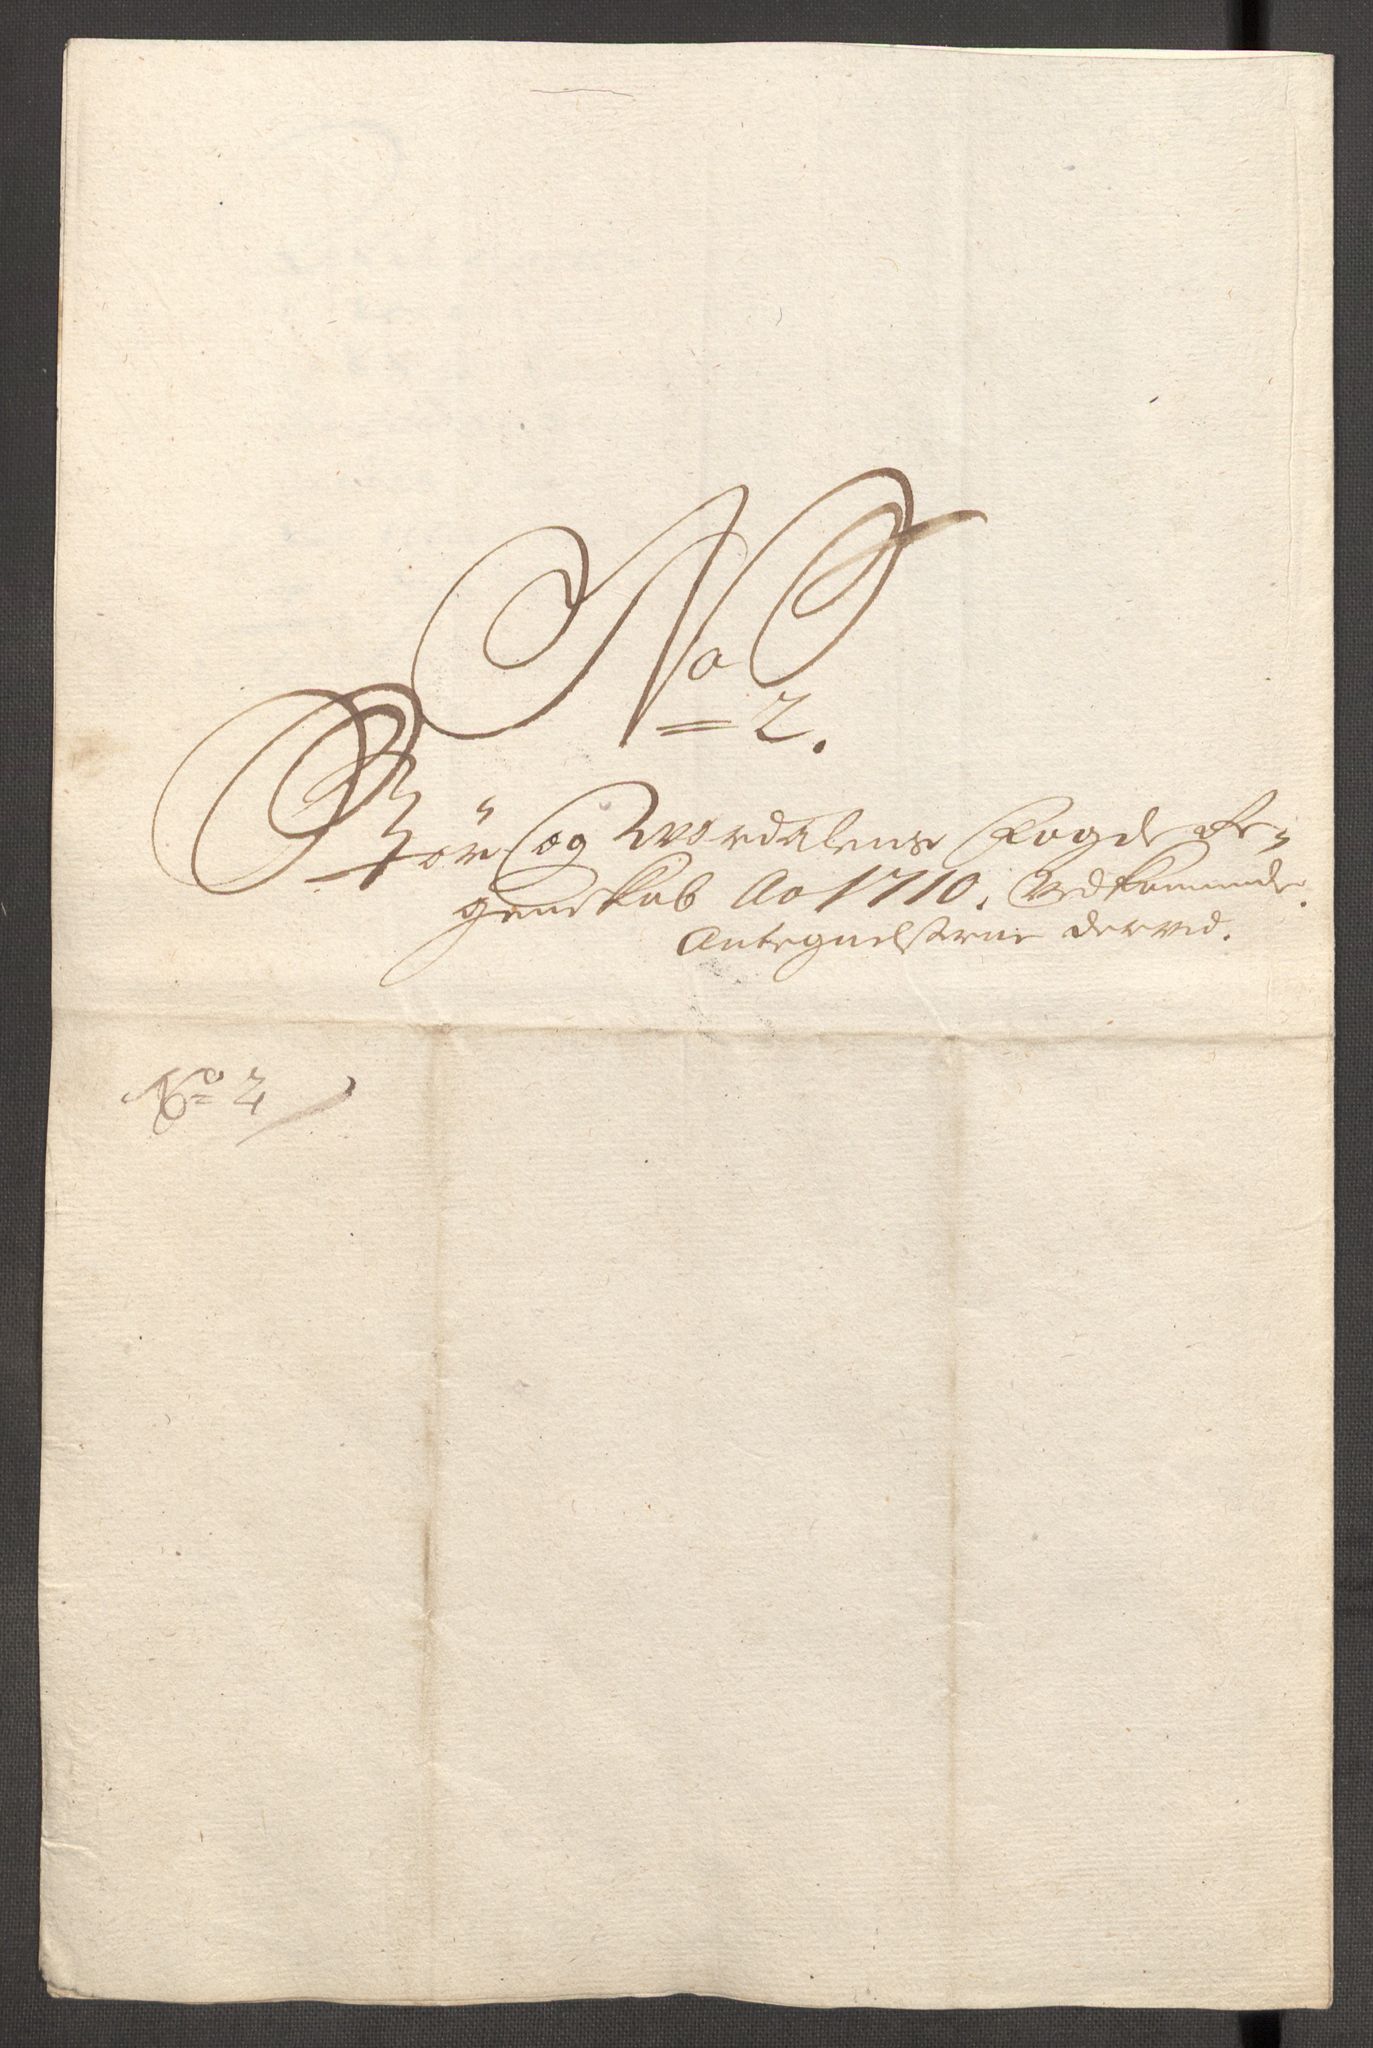 No
2.
Stör og Værdalens Fogde Re-
genskab Ao 1710. Vedkommende.
Antegnelserne derved.
No 2